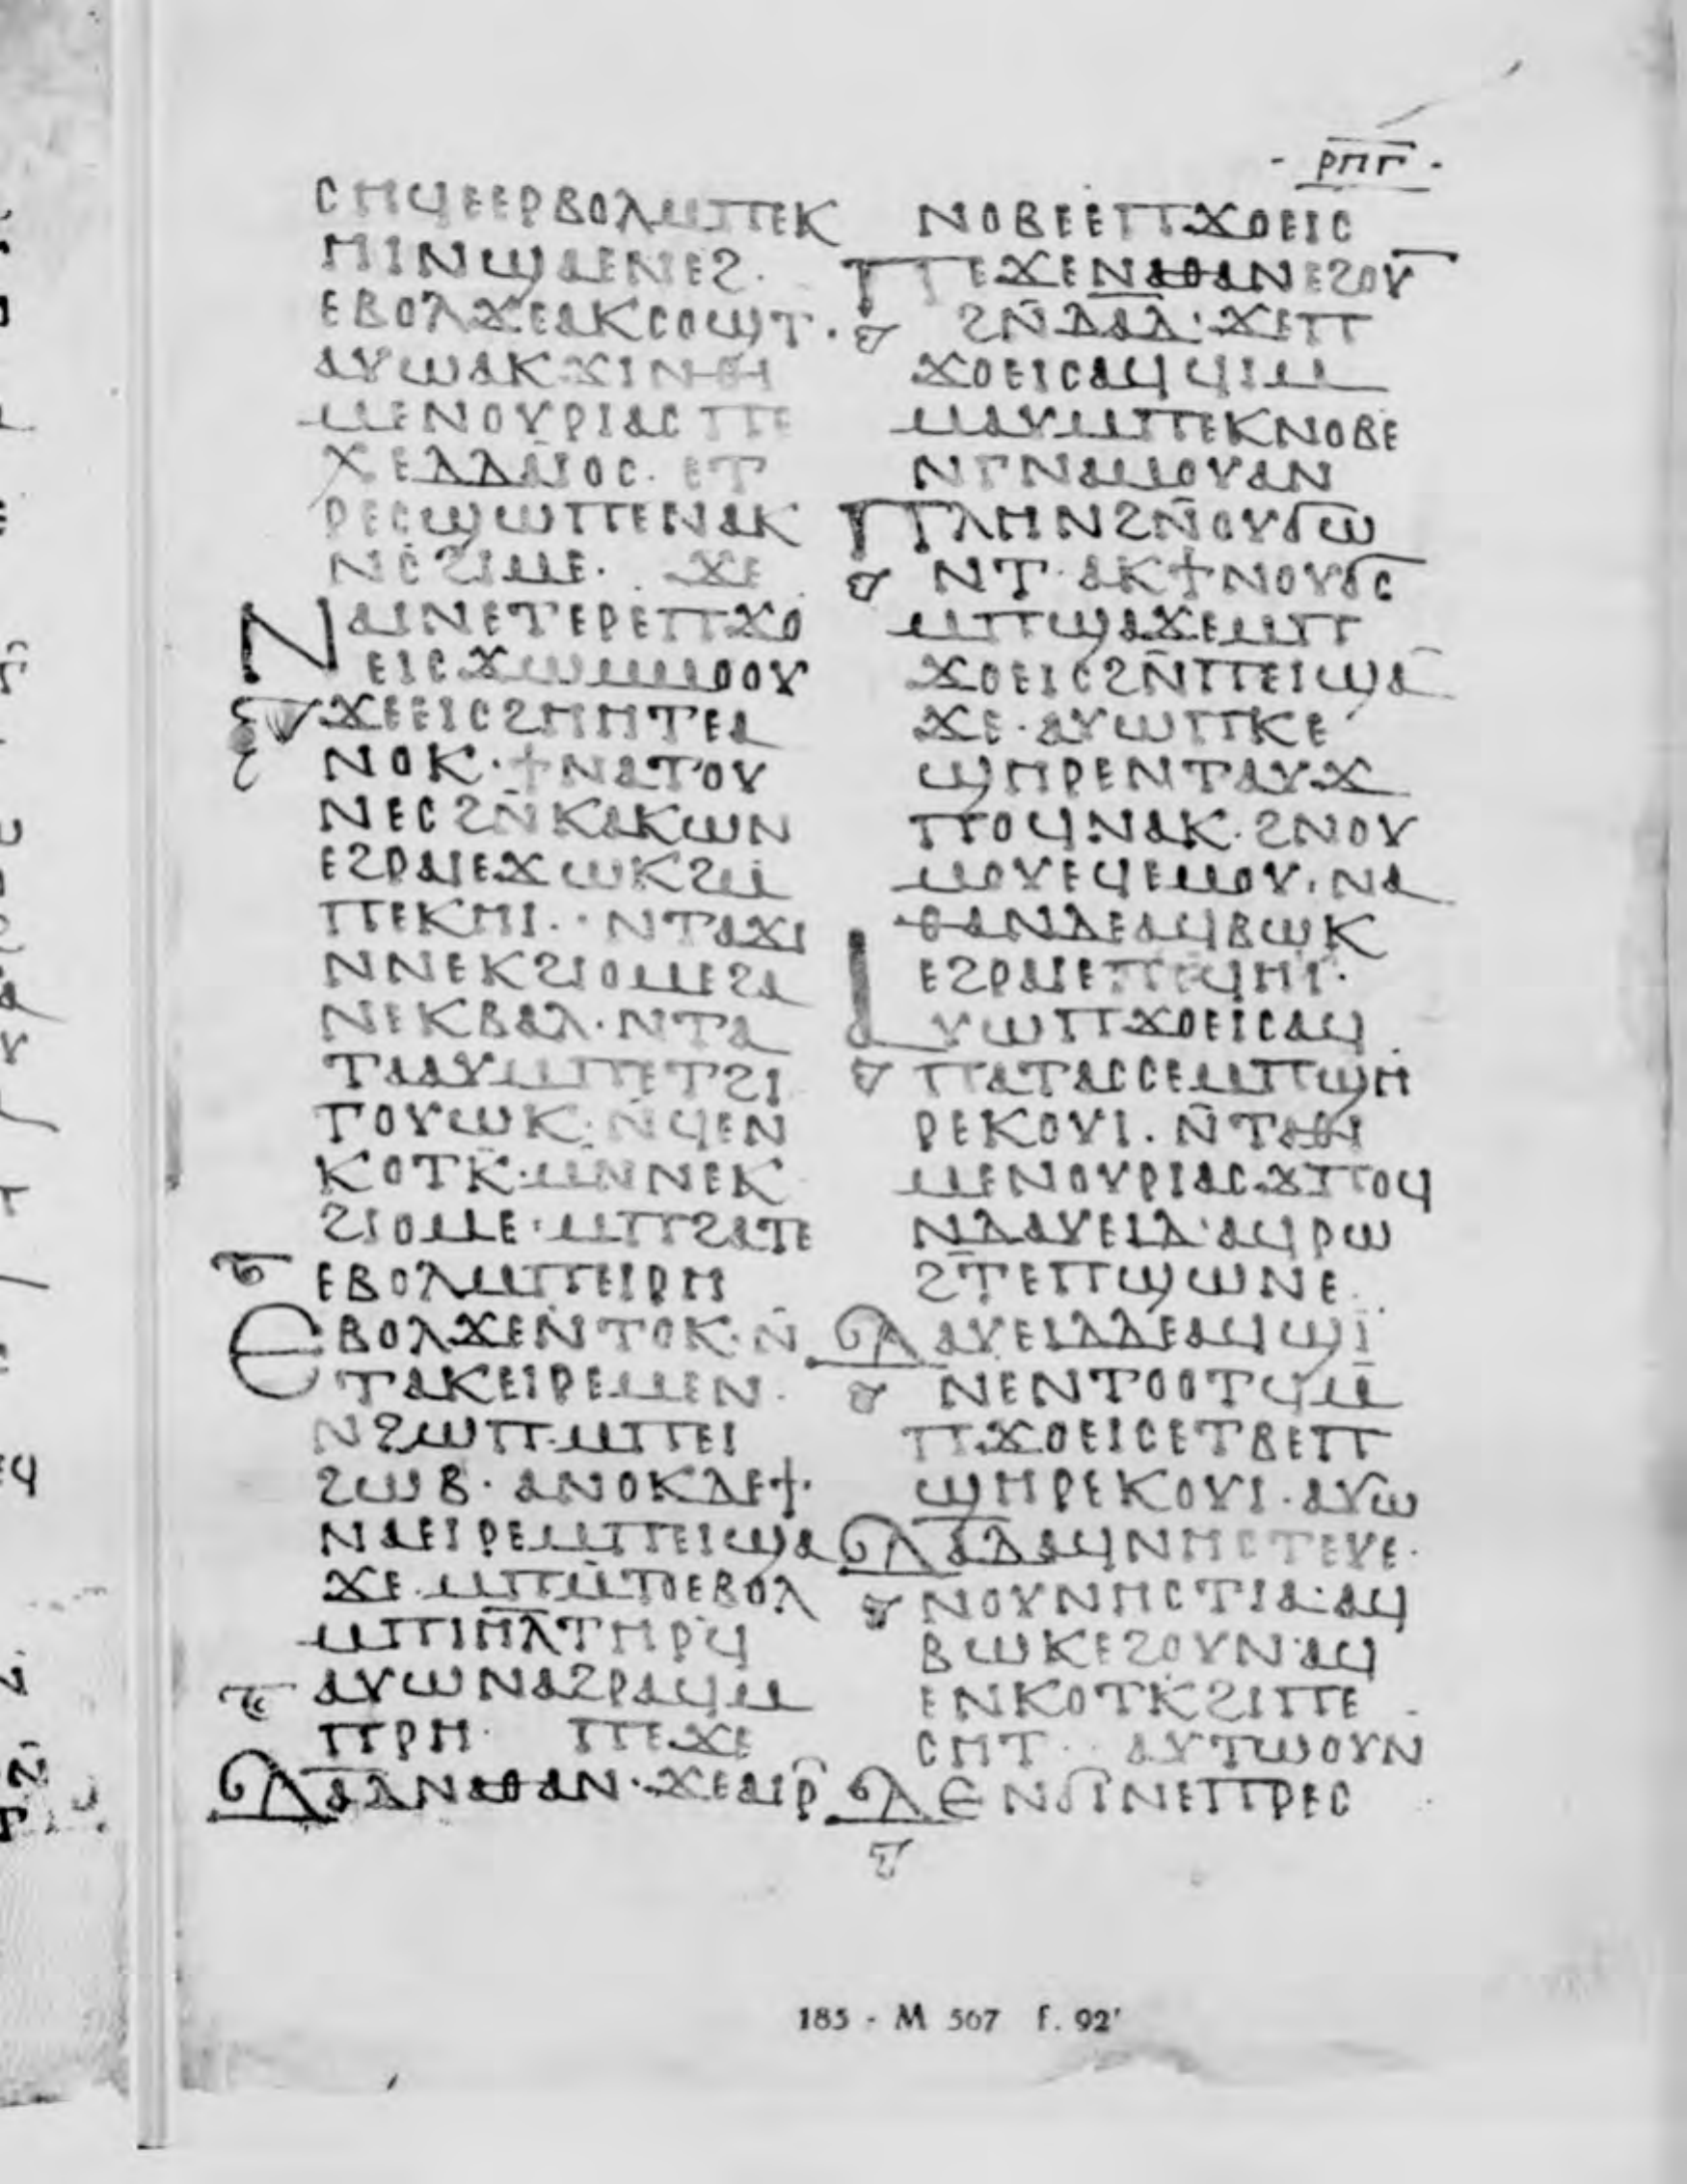 - ⲣⲡⲅ -
ⲥⲏϥⲉⲉⲣⲃⲟⲗⲙⲡⲉⲕ
ⲏⲓⲛϣⲁⲉⲛⲉϩ·
ⲉⲃⲟⲗϫⲉⲁⲕⲥⲟϣϥ·
ⲁⲩⲱⲁⲕϫⲓⲛⲑⲓ
ⲙⲉⲛⲟⲩⲣⲓⲁⲥⲡⲉ
ⲭⲉⲇⲇⲁⲓⲟⲥ· ⲉⲧ
ⲣⲉⲥϣⲱⲡⲉⲛⲁⲕ
ⲛⲥϩⲓⲙⲉ· ϫⲉ
ⲛⲁⲓⲛⲉⲧⲉⲣⲉⲡϫⲟ
ⲉⲓⲥϫⲱⲙⲙⲟⲟⲩ
ϫⲉⲉⲓⲥϩⲏⲏⲧⲉⲁ
ⲛⲟⲕ·ϯⲛⲁⲧⲟⲩ
ⲛⲉⲥϩⲛ̄ⲕⲁⲕⲱⲛ
ⲉϩⲣⲁⲓⲉϫⲱⲕϩⲙ̄
ⲡⲉⲕⲏⲓ·ⲛⲧⲁϫⲓ
ⲛⲛⲉⲕϩⲓⲟⲙⲉϩⲁ
ⲛⲉⲕⲃⲁⲗ·ⲛⲧⲁ
ⲧⲁⲁⲩⲙⲡⲉⲧϩⲓ
ⲧⲟⲩⲱⲕ·ⲛ̄ϥⲉⲛ
ⲕⲟⲧⲕ̄·ⲙⲛ̄ⲛⲉⲕ
ϩⲓⲟⲙⲉ·ⲙⲡϩⲁⲧⲉ
ⲉⲃⲟⲗⲙⲡⲉⲓⲣⲏ
ⲉⲃⲟⲗϫⲉⲛ̄ⲧⲟⲕ·ⲛ̄
ⲧⲁⲕⲉⲓⲣⲉⲙⲉⲛ·
ⲛϩⲱⲡ·ⲙⲡⲉⲓ
ϩⲱⲃ·ⲁⲛⲟⲕⲇⲉϯ·
ⲛⲁⲉⲓⲣⲉⲙⲡⲉⲓϣⲁ
ϫⲉ·ⲙⲡⲙ̄ⲧⲟⲉⲃⲟⲗ
ⲙⲡⲓⲏ̄ⲗ̄ⲧⲏⲣϥ
ⲁⲩⲱⲛⲁϩⲣⲁϥⲙ
ⲡⲣⲏ· ⲡⲉϫⲉ
ⲇⲁⲇⲛⲁⲑⲁⲛ·ϫⲉⲁⲓⲣ̄
ⲛⲟⲃⲉⲉⲡϫⲟⲉⲓⲥ
ⲡⲉϫⲉⲛⲁⲑⲁⲛⲉϩⲟⲩ
ϩⲛ̄ⲇⲁⲇ·ϫⲉⲡ
ϫⲟⲉⲓⲥⲁϥϥⲓⲙ
ⲙⲁⲩⲙⲡⲉⲕⲛⲟⲃⲉ
ⲛⲅⲛⲁⲙⲟⲩⲁⲛ
ⲡⲗⲏⲛϩⲛ̄ⲟⲩϭⲱ
ⲛⲧ·ⲁⲕϯⲛⲟⲩϭⲥ
ⲙⲡϣⲁϫⲉⲙⲡ
ϫⲟⲉⲓⲥϩⲛ̄ⲡⲉⲓϣⲁ
ϫⲉ·ⲁⲩⲱⲡⲕⲉ
ϣⲏⲣⲉⲛⲧⲁⲩϫ
ⲡⲟϥⲛⲁⲕ·ϩⲛⲟⲩ
ⲙⲟⲩⲉϥⲉⲙⲟⲩ·ⲛⲁ
ⲑⲁⲛⲇⲉⲁϥⲃⲱⲕ
ⲉϩⲣⲁⲓⲉⲡⲉϥⲏⲓ·
ⲁⲩⲱⲡϫⲟⲉⲓⲥⲁϥ
ⲡⲁⲧⲁⲥⲥⲉⲙⲡϣⲏ
ⲣⲉⲕⲟⲩⲓ·ⲛ̄ⲧⲁⲑⲓ
ⲙⲉⲛⲟⲩⲣⲓⲁⲥ·ϫⲡⲟϥ
ⲛⲇⲁⲩⲉⲓⲇ·ⲁϥⲣⲱ
ϩⲧ̄ⲉⲡϣⲱⲛⲉ·
ⲇⲁⲩⲉⲓⲇⲇⲉⲁϥϣⲓ
ⲛⲉⲛⲧⲟⲟⲧϥⲙ̄
ⲡϫⲟⲉⲓⲥⲉⲧⲃⲉⲡ
ϣⲏⲣⲉⲕⲟⲩⲓ·ⲁⲩⲱ
ⲇⲁⲇⲁϥⲛⲏⲥⲧⲉⲩⲉ·
ⲛⲟⲩⲛⲏⲥⲧⲓⲁ·ⲁϥ
ⲃⲱⲕⲉϩⲟⲩⲛ·ⲁϥ
ⲉⲛⲕⲟⲧⲕ̄ϩⲓⲡⲉ
ⲥⲏⲧ· ⲁⲩⲧⲱⲟⲩⲛ
ⲇⲉⲛϭⲓⲛⲉⲡⲣⲉⲥ
185 - M 567 f. 92'